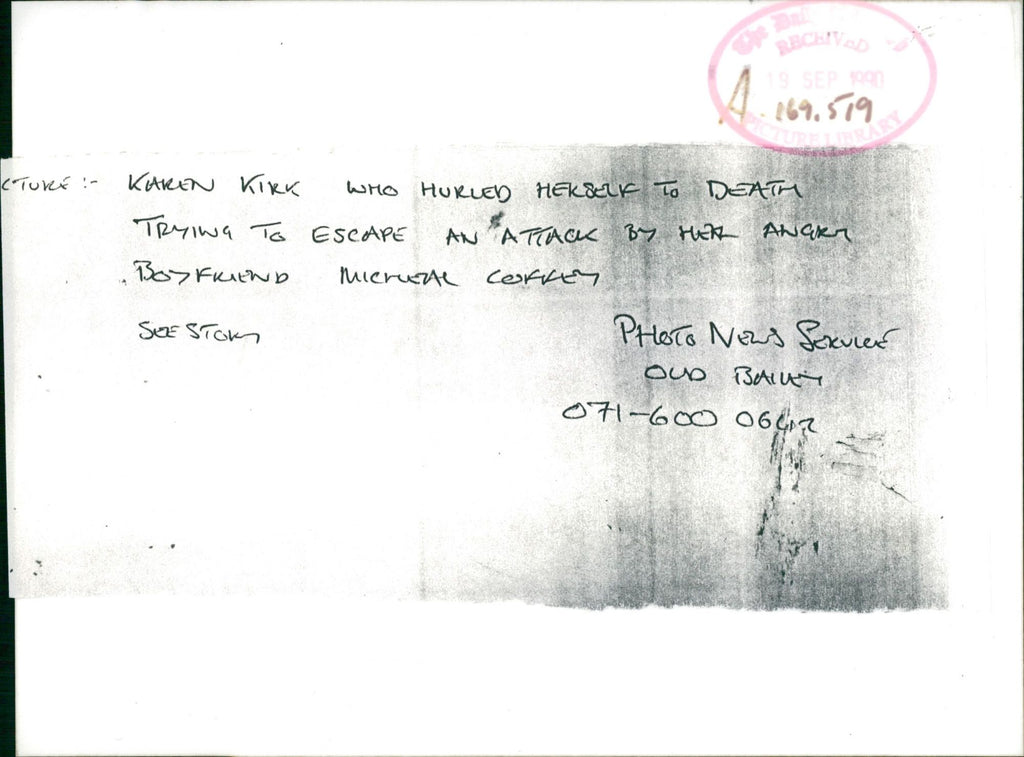 The
RECEIVED
19 SEP 1990
A. 169.519
PICTURE LIBRARY
CTURE :- KAREN KIRK WHO HURLED HERSELF TO DEATH
TRYING TO ESCAPE AN ATTACK BY HER ANGRY
BOYFRIEND MICHEAL COFFEY
SEE STORY
PHOTO NEWS SERVICE
OLD BAILEY
071-600 0642